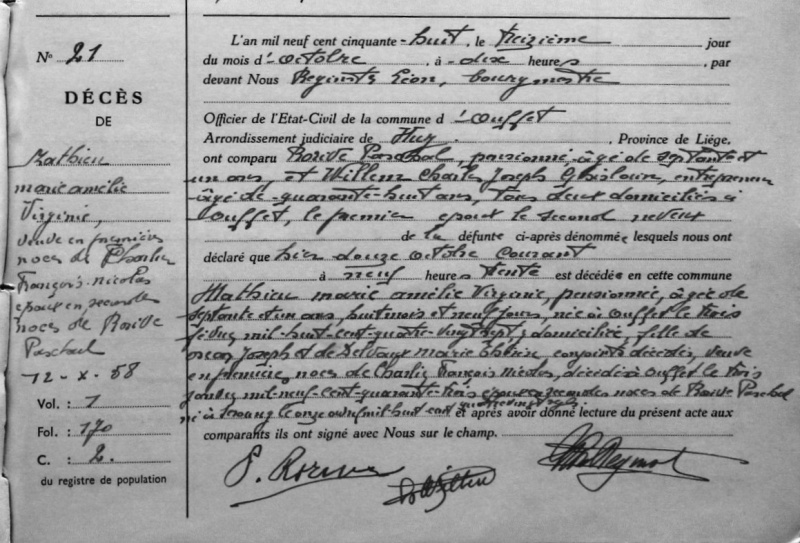 N° 21
DÉCÈS
DE
Mathieu
marie amélie
Virginie,
veuve en premières
noces de Charlier
François-nicolas
épouse en secondes
noces de
Paschal
12-X-58
Vol. : 1
Fol. : 170
C. : 2.
du registre de population
L'an mil neuf cent cinquante-huit, le treizième jour
du mois d'octobre, à dix heures, par
devant Nous Léon, bourgmestre
Officier de l'Etat-Civil de la commune d'Ouffet
Arrondissement judiciaire de Huy, Province de Liége,
ont comparu Paschal, pensionné, âgé de septante et
un ans, et Willem Charles Joseph Ghislain, entrepreneur
âgé de quarante-huit ans, tous deux domiciliés à
Ouffet, le premier époux le second neveux
de la défunte ci-après dénommée lesquels nous ont
déclaré que hier douze octobre courant
à neuf heures trente est décédée en cette commune
Mathieu marie amélie Virginie, pensionnée, âgée de
septante et un ans, huit mois et neuf jours, née à Ouffet le trois
février mil-huit-cent-quatre-vingt-sept, domiciliée, fille de
Joseph et de marie conjoints décédés, veuve
en premières noces de Charlier François Nicolas, décédé à Ouffet le trois
mil-neuf-cent-quarante-trois épouse en secondes noces de Paschal
né à le onze mil-huit-cent quatre-vingt-sept et après avoir donné lecture du présent acte aux
comparants ils ont signé avec Nous sur le champ.